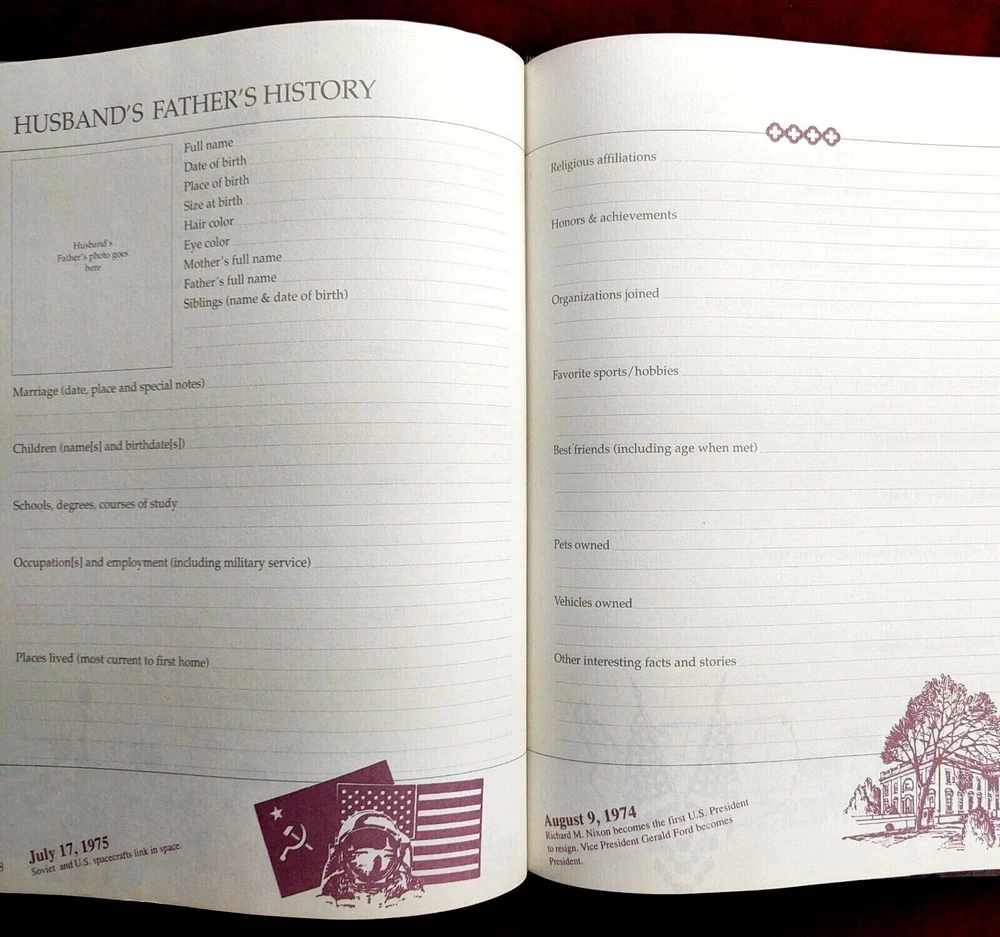 HUSBAND'S FATHER'S HISTORY
Husband's
Father's photo goes
here
Full name
Date of birth
Place of birth
Size at birth
Hair color
Eye color
Mother's full name
Father's full name
Siblings (name & date of birth)
Marriage (date, place and special notes)
Children (name[s] and birthdate[s])
Schools, degrees, courses of study
Occupation[s] and employment (including military service)
Places lived (most current to first home)
8
July 17, 1975
Soviet and U.S. spacecrafts link in space.
Religious affiliations
Honors & achievements
Organizations joined
Favorite sports/hobbies
Best friends (including age when met)
Pets owned
Vehicles owned
Other interesting facts and stories
August 9, 1974
Richard M. Nixon becomes the first U.S. President
to resign. Vice President Gerald Ford becomes
President.